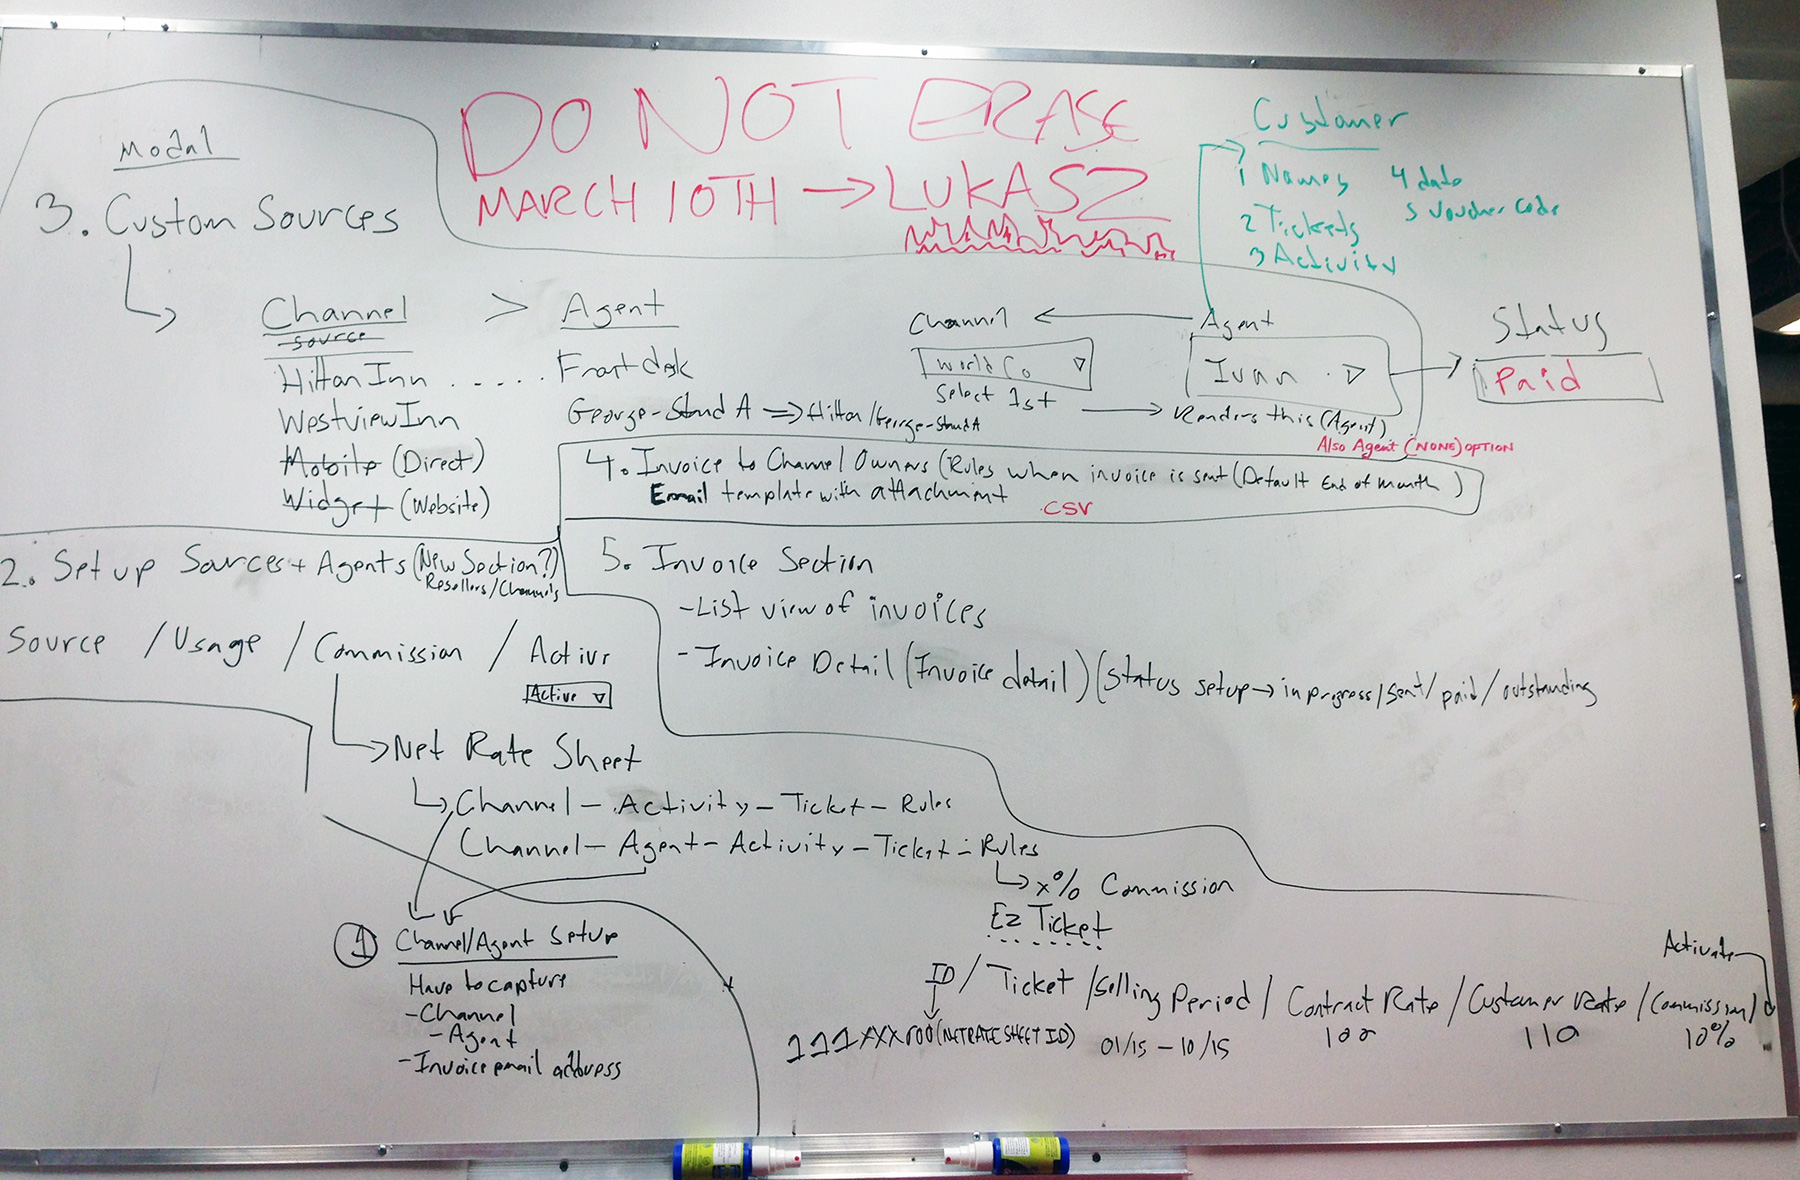 DO NOT ERASE
MARCH 10TH → LUKASZ
Customer
1 Names
2 Tickets
3 Activity
4 date
5 Voucher Code
Modal
3. Custom Sources
Channel > Agent
Source
Hilton Inn ..... Front desk
WestviewInn
George-Stand A ⇒ Hilton/George-Stand A
Mobile (Direct)
Widget (Website)
Channel ← Agent
World Co ▽
Ivan . ▽
Select 1st → Renders this (Agent)
Also Agent (NONE) OPTION
Status
Paid
4. Invoice to Channel Owners (Rules when invoice is sent (Default End of Month)
Email template with attachment
.CSV
2. Set up Sources + Agents (New Section?)
Resellers/Channels
Source / Usage / Commission / Active
Active ▽
→ Net Rate Sheet
→ Channel - Activity - Ticket - Rules
Channel - Agent - Activity - Ticket - Rules
→ x% Commission
5. Invoice Section
- List view of invoices
- Invoice Detail (Invoice detail) (Status setup → in progress/sent/paid/outstanding
1 Channel/Agent Setup
Have to capture
- Channel
- Agent
- Invoice email address
Ez Ticket
Activate
ID / Ticket / Selling Period / Contract Rate / Customer Rate / Commission /
111XXX000 (NET RATE SHEET ID) 01/15 - 10/15 100 110 10%